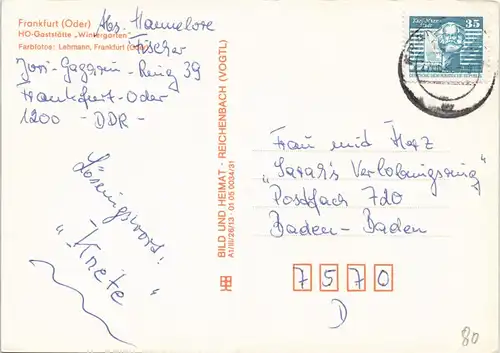 Frankfurt (Oder)
HO-Gaststätte „Wintergarten"
Farbfotos: Lehmann, Frankfurt (Od
Abs. Hannelore
Fischer
Juri-Gagarin-Ring 39
Frankfurt-Oder
1200 - DDR -
Lösungswort:
„Knete"
BILD UND HEIMAT · REICHENBACH (VOGTL)
A1/III/26/13 · 01 05 0034/31
35
DEUTSCHE DEMOKRATISCHE REPUBLIK
Frau mit Herz
„Sarah's Verlobungsring"
Postfach 720
Baden-Baden
7570
D
80